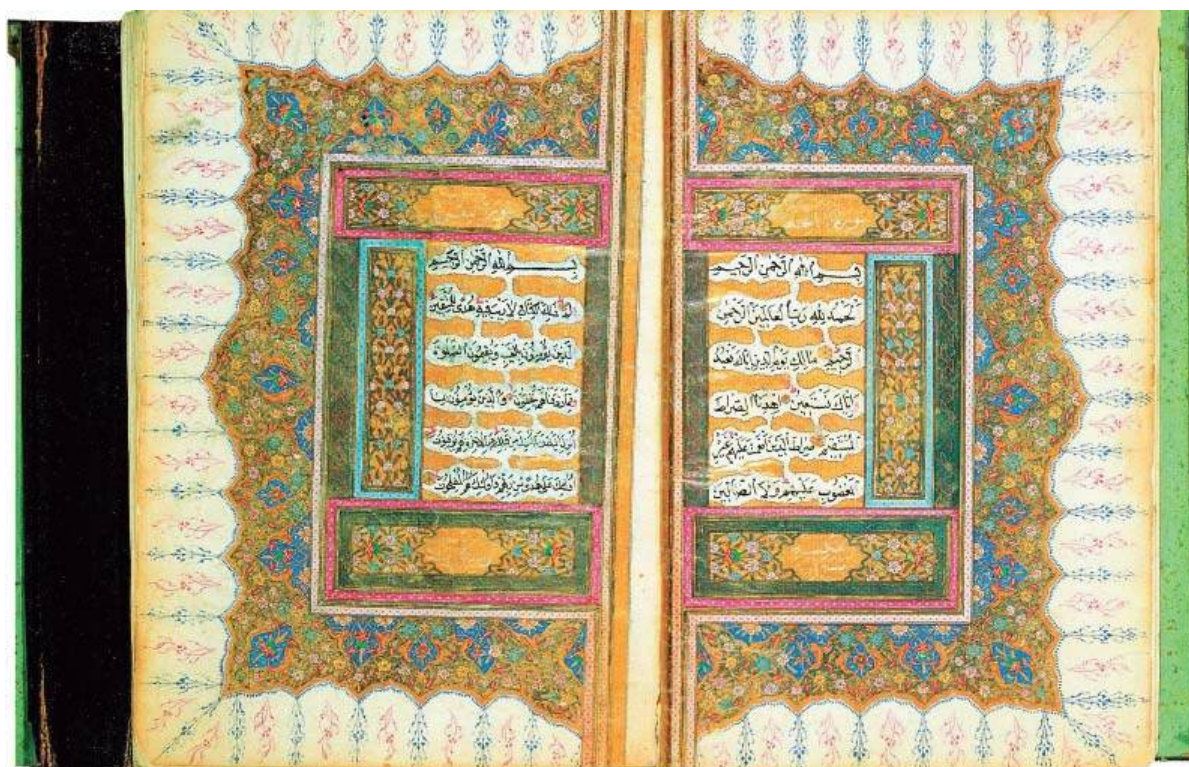 بِسْمِ اللهِ الرَّحْمٰنِ الرَّحِيمِ
اَلْحَمْدُ لِلّٰهِ رَبِّ الْعَالَمِينَ الرَّحْمٰنِ
الرَّحِيمِ مَالِكِ يَوْمِ الدِّينِ اِيَّاكَ نَعْبُدُ
وَاِيَّاكَ نَسْتَعِينُ اِهْدِنَا الصِّرَاطَ
الْمُسْتَقِيمَ صِرَاطَ الَّذِينَ اَنْعَمْتَ عَلَيْهِمْ غَيْرِ
الْمَغْضُوبِ عَلَيْهِمْ وَلَا الضَّالِّينَ
بِسْمِ اللهِ الرَّحْمٰنِ الرَّحِيمِ
الم ذٰلِكَ الْكِتَابُ لَا رَيْبَ فِيهِ هُدًى لِلْمُتَّقِينَ
الَّذِينَ يُؤْمِنُونَ بِالْغَيْبِ وَيُقِيمُونَ الصَّلٰوةَ
وَمِمَّا رَزَقْنَاهُمْ يُنْفِقُونَ وَالَّذِينَ يُؤْمِنُونَ بِمَا
اُنْزِلَ اِلَيْكَ وَمَا اُنْزِلَ مِنْ قَبْلِكَ وَبِالْاٰخِرَةِ هُمْ يُوقِنُونَ
اُولٰئِكَ عَلٰى هُدًى مِنْ رَبِّهِمْ وَاُولٰئِكَ هُمُ الْمُفْلِحُونَ